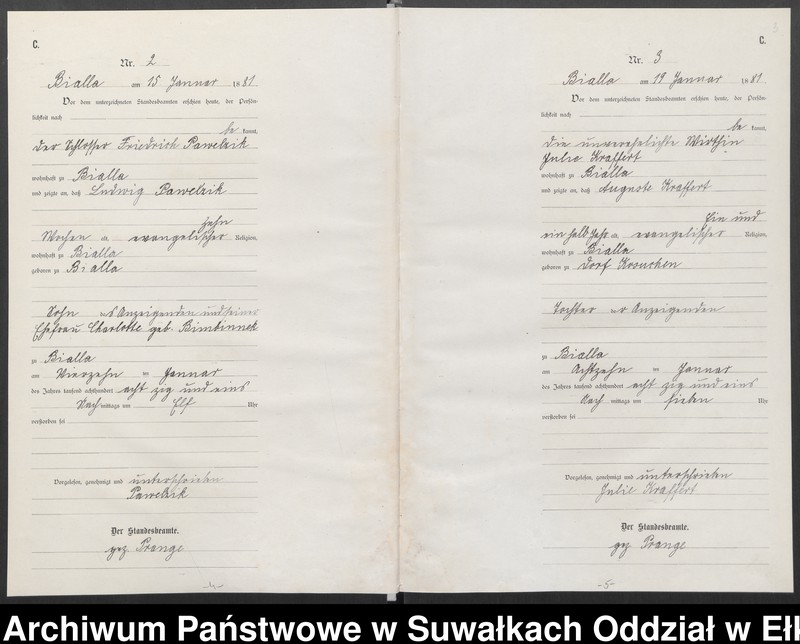 C.
Nr. 2
Bialla am 15 Januar 1881
Vor dem unterzeichneten Standesbeamten erschien heute, der Persön-
lichkeit nach
be kannt,
der Schlosser Friedrich Pawelzik
wohnhaft zu Bialla
und zeigte an, daß Ludwig Pawelzik
zehn
Wochen alt, evangelischer Religion,
wohnhaft zu Bialla
geboren zu Bialla
Sohn des Anzeigenden und seiner
Ehefrau Charlotte geb. Bimbinnek
zu Bialla
am Vierzehn ten Januar
des Jahres tausend achthundert acht zig und eins
Nach mittags um Elf Uhr
verstorben sei
Vorgelesen, genehmigt und unterschrieben
Pawelzik
Der Standesbeamte.
gez. Prange
-4-
3
C.
Nr. 3
Bialla am 19 Januar 1881
Vor dem unterzeichneten Standesbeamten erschien heute, der Persön-
lichkeit nach
be kannt,
die unverehelichte Wirthin
Julie Kraffert
wohnhaft zu Bialla
und zeigte an, daß Auguste Kraffert
Ein und
ein halb Jahr alt, evangelischer Religion,
wohnhaft zu Bialla
geboren zu Dorf Kosuchen
Tochter der Anzeigenden
zu Bialla
am Achtzehn ten Januar
des Jahres tausend achthundert acht zig und eins
Nach mittags um sieben Uhr
verstorben sei
Vorgelesen, genehmigt und unterschrieben
Julie Kraffert
Der Standesbeamte.
gez Prange
-5-
Archiwum Państwowe w Suwałkach Oddział w Ełk